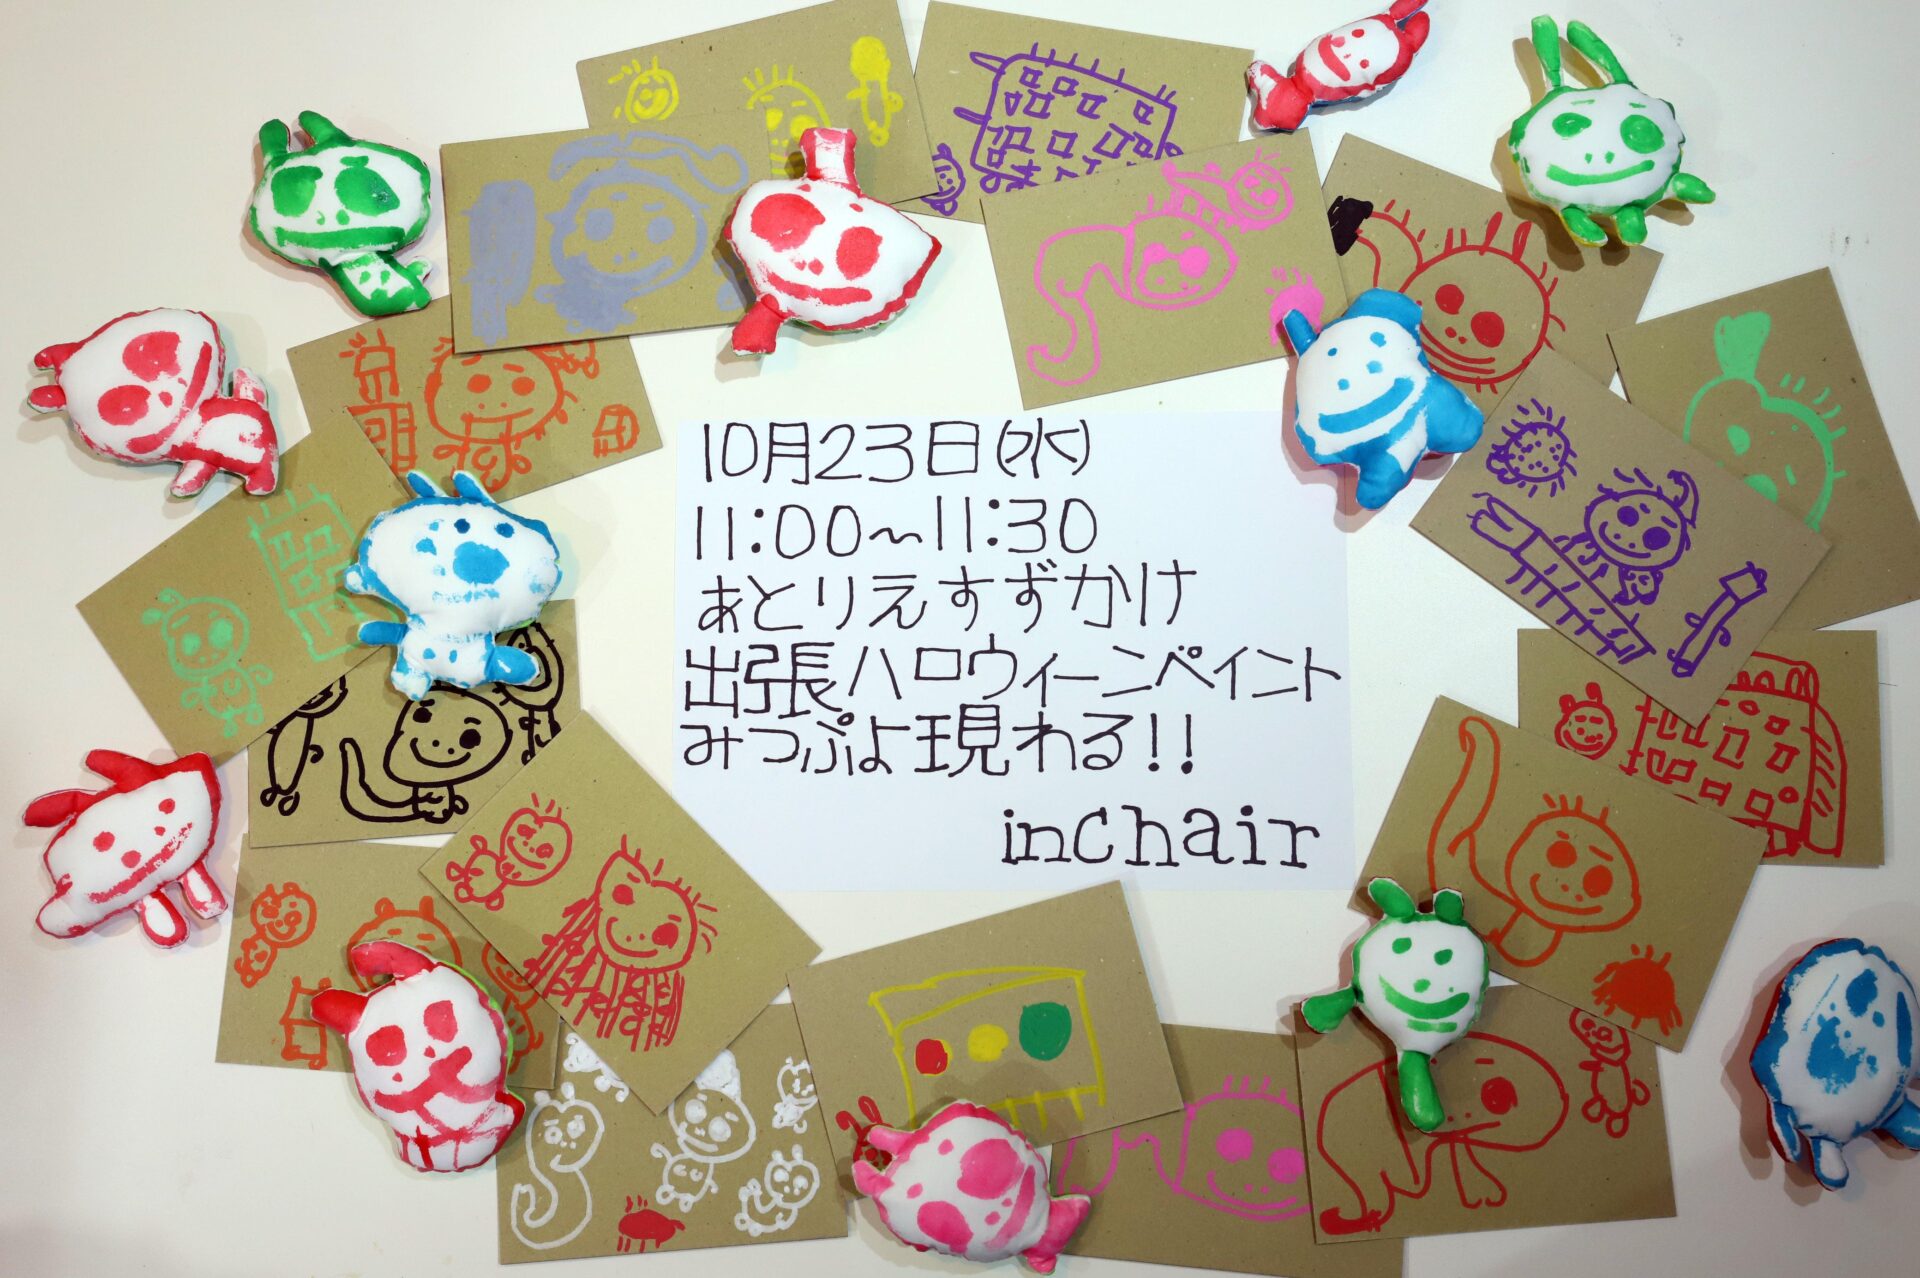 10月23日(水)
11:00〜11:30
あとりえすずかけ
出張ハロウィーンペイント
みつぷよ現わる!!
inchair